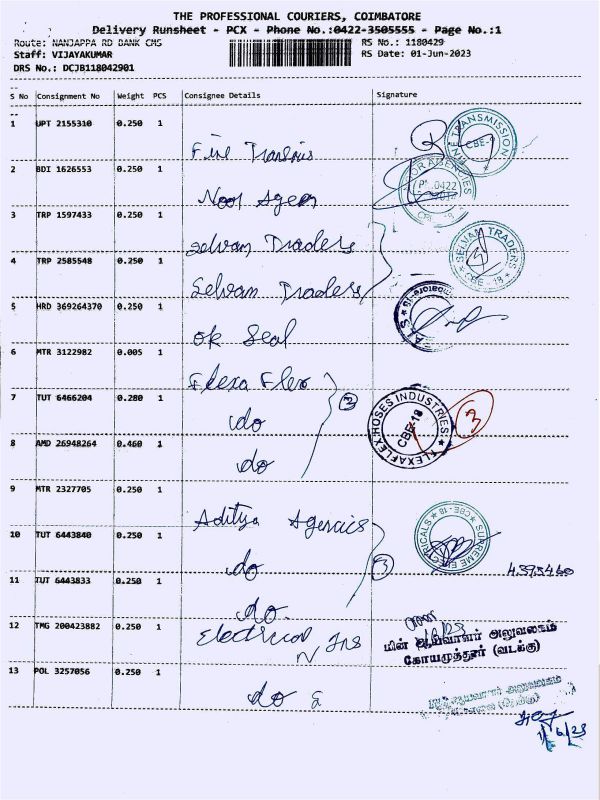 THE PROFESSIONAL COURIERS, COIMBATORE
Delivery Runsheet - PCX - Phone No.:0422-3505555 - Page No.:1
Route: NANJAPPA RD BANK CMS RS No.: 1180429
Staff: VIJAYAKUMAR RS Date: 01-Jun-2023
DRS No.: DCJB118042901
S No Consignment No Weight PCS Consignee Details Signature
1 UPT 2155310 0.250 1
FINE TRANSMISSION CBE-
2 BDI 1626553 0.250 1
Noor Agen
AGENCIES 0422
3 TRP 1597433 0.250 1
Selvam Traders
SELVAM TRADERS CBE - 18
4 TRP 2585548 0.250 1
Selvam Traders
5 HRD 369264370 0.250 1
ok Seal
6 MTR 3122982 0.005 1
Flexa Flex
7 TUT 6466204 0.280 1
do 3
FLEXAFLEX HOSES INDUSTRIES CBE-18 3
8 AMD 26948264 0.460 1
do
9 MTR 2327705 0.250 1
Aditya Agencies
10 TUT 6443840 0.250 1
do 3
SUPREME ELECTRICALS CBE-18
11 TUT 6443833 0.250 1
do.
12 TMG 200423882 0.250 1
Electrical Ins
N
மின் ஆய்வாளர் அலுவலகம்
கோயமுத்தூர் (வடக்கு)
13 POL 3257056 0.250 1
do
1/6/23